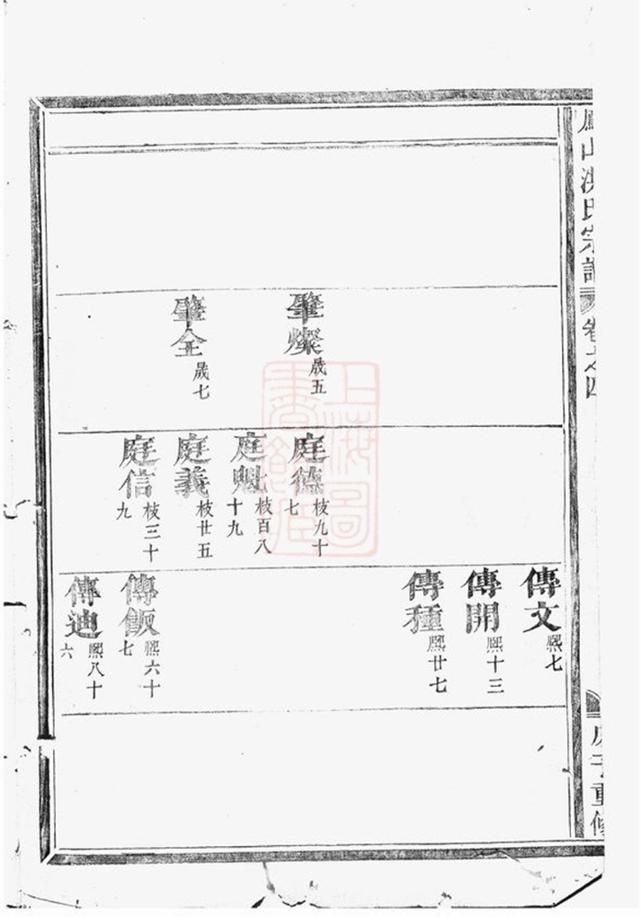 山洪氏宗譜
卷之四
重修
肇燦
歲五
肇全
歲七
庭德
枝九十
七
庭
枝百八
十九
庭義
枝廿五
庭信
枝三十
九
傳文
熙七
傳開
熙十三
傳種
熙廿七
傳飯
熙六十
七
傳迪
熙八十
六
上海圖